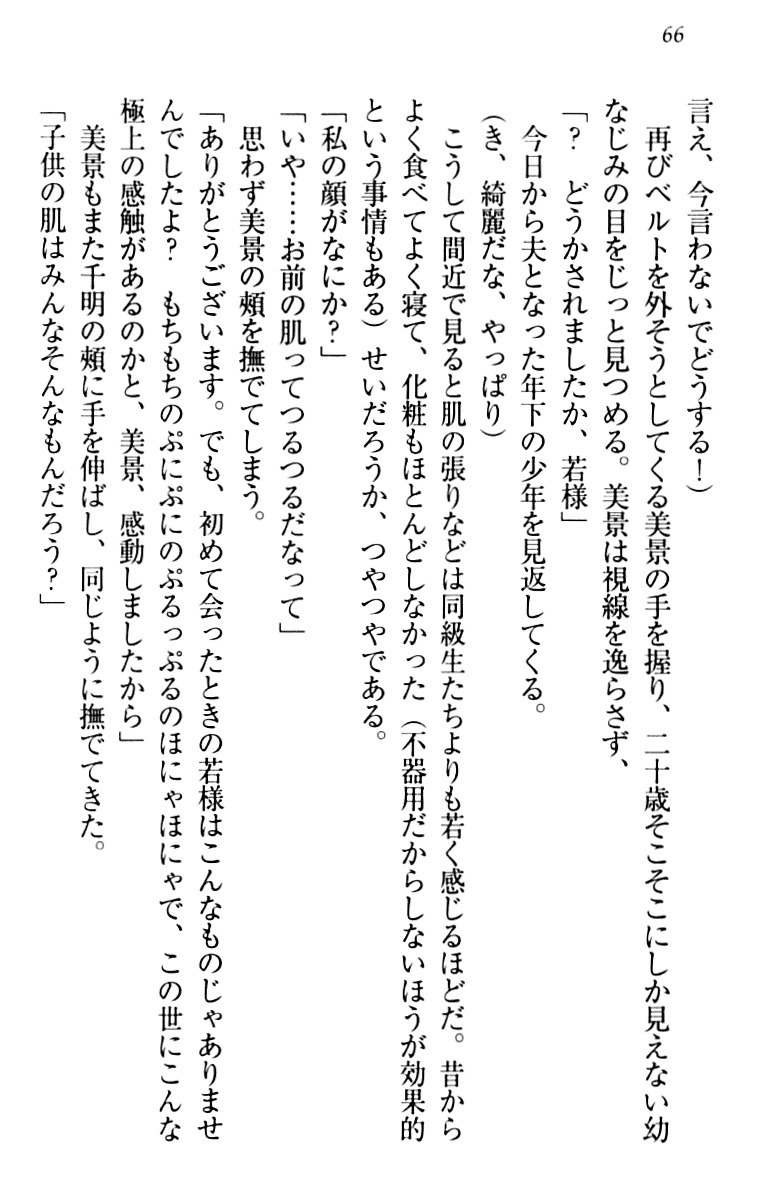 66
言え、今言わないでどうする！）
　再びベルトを外そうとしてくる美景の手を握り、二十歳そこそこにしか見えない幼
なじみの目をじっと見つめる。美景は視線を逸らさず、
「？　どうかされましたか、若様」
　今日から夫となった年下の少年を見返してくる。
（き、綺麗だな、やっぱり）
　こうして間近で見ると肌の張りなどは同級生たちよりも若く感じるほどだ。昔から
よく食べてよく寝て、化粧もほとんどしなかった（不器用だからしないほうが効果的
という事情もある）せいだろうか、つやつやである。
「私の顔がなにか？」
「いや……お前の肌ってつるつるだなって」
　思わず美景の頬を撫でてしまう。
「ありがとうございます。でも、初めて会ったときの若様はこんなものじゃありませ
んでしたよ？　もちもちのぷにぷにのぷるっぷるのほにゃほにゃで、この世にこんな
極上の感触があるのかと、美景、感動しましたから」
　美景もまた千明の頬に手を伸ばし、同じように撫でてきた。
「子供の肌はみんなそんなもんだろう？」